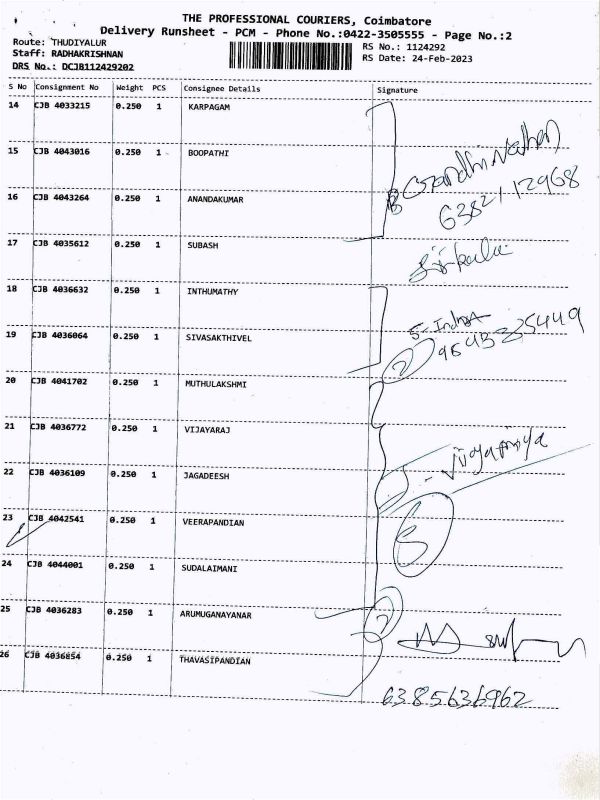 THE PROFESSIONAL COURIERS, Coimbatore
Delivery Runsheet - PCM - Phone No.:0422-3505555 - Page No.:2
Route: THUDIYALUR
RS No.: 1124292
Staff: RADHAKRISHNAN
RS Date: 24-Feb-2023
DRS No.: DCJB112429202
S No Consignment No Weight PCS Consignee Details Signature
14 CJB 4033215 0.250 1 KARPAGAM
15 CJB 4043016 0.250 1 BOOPATHI
16 CJB 4043264 0.250 1 ANANDAKUMAR
Gandhi Nathan
6382112968
17 CJB 4035612 0.250 1 SUBASH
18 CJB 4036632 0.250 1 INTHUMATHY
19 CJB 4036064 0.250 1 SIVASAKTHIVEL
S-Indra
2
20 CJB 4041702 0.250 1 MUTHULAKSHMI
21 CJB 4036772 0.250 1 VIJAYARAJ
22 CJB 4036109 0.250 1 JAGADEESH
23 CJB 4042541 0.250 1 VEERAPANDIAN
5
24 CJB 4044001 0.250 1 SUDALAIMANI
25 CJB 4036283 0.250 1 ARUMUGANAYANAR
2
26 CJB 4036854 0.250 1 THAVASIPANDIAN
6385636962